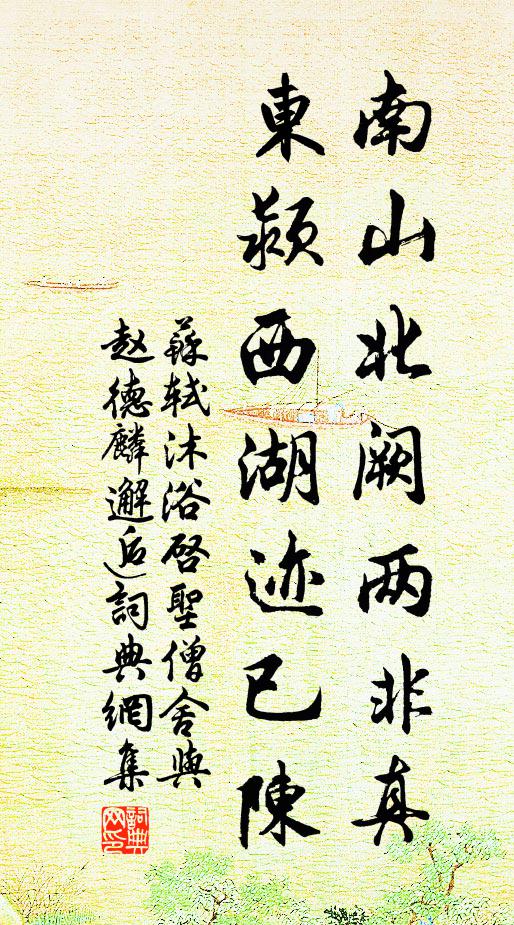 南山北阙两非真
東颍西湖迹已陳
蘇軾沐浴啓聖僧舍與
赵德麟邂逅詞典網集
詞典
网印